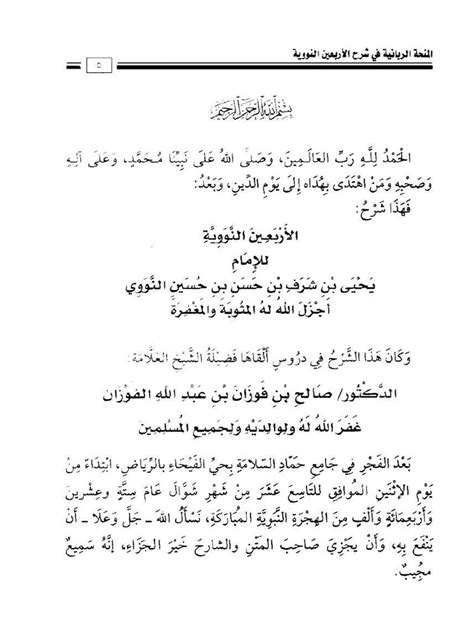 المنحة الربانية في شرح الأربعين النووية
٥
بِسْمِ اللَّهِ الرَّحْمَنِ الرَّحِيمِ
الْحَمْدُ لِلَّهِ رَبِّ الْعَالَمِينَ، وَصَلَّى اللهُ عَلَى نَبِيِّنَا مُحَمَّدٍ، وَعَلَى آلِهِ
وَصَحْبِهِ وَمَنِ اهْتَدَى بِهُدَاهُ إِلَى يَوْمِ الدِّينِ، وَبَعْدُ:
فَهَذَا شَرْحُ:
الأَرْبَعِينَ النَّوَوِيَّةِ
لِلإِمَامِ
يَحْيَى بْنِ شَرَفِ بْنِ حَسَنِ بْنِ حُسَيْنٍ النَّوَوِيِّ
أَجْزَلَ اللهُ لَهُ الْمَثُوبَةَ والْمَغْفِرَةَ
وَكَانَ هَذَا الشَّرْحُ فِي دُرُوسٍ أَلْقَاهَا فَضِيلَةُ الشَّيْخِ العَلَّامَة:
الدَّكْتُور/ صَالِحِ بْنِ فَوْزَانَ بْنِ عَبْدِ اللهِ الفَوْزَان
غَفَرَ اللهُ لَهُ ولِوالِدَيْهِ وَلِجَمِيعِ الْمُسْلِمِين
بَعْدَ الْفَجْرِ فِي جَامِعِ حَمَّادِ السَّلَامَةِ بِحَيِّ الْفَيْحَاءِ بِالرِّيَاضِ، ابْتِدَاءً مِنْ
يَوْمِ الإِثْنَيْنِ الْمُوَافِقِ لِلتَّاسِعَ عَشَرَ مِنْ شَهْرِ شَوَّالَ عَامَ سِتَّةٍ وعِشْرِينَ
وَأَرْبَعِمِائَةٍ وَأَلْفٍ مِنَ الْهِجْرَةِ النَّبَوِيَّةِ الْمُبَارَكَةِ، نَسْأَلُ اللهَ ـ جَلَّ وَعَلَا ـ أَنْ
يَنْفَعَ بِهِ، وَأَنْ يَجْزِيَ صَاحِبَ الْمَتْنِ والشارحَ خَيْرَ الْجَزَاءِ، إِنَّهُ سَمِيعٌ
مُجِيبٌ.